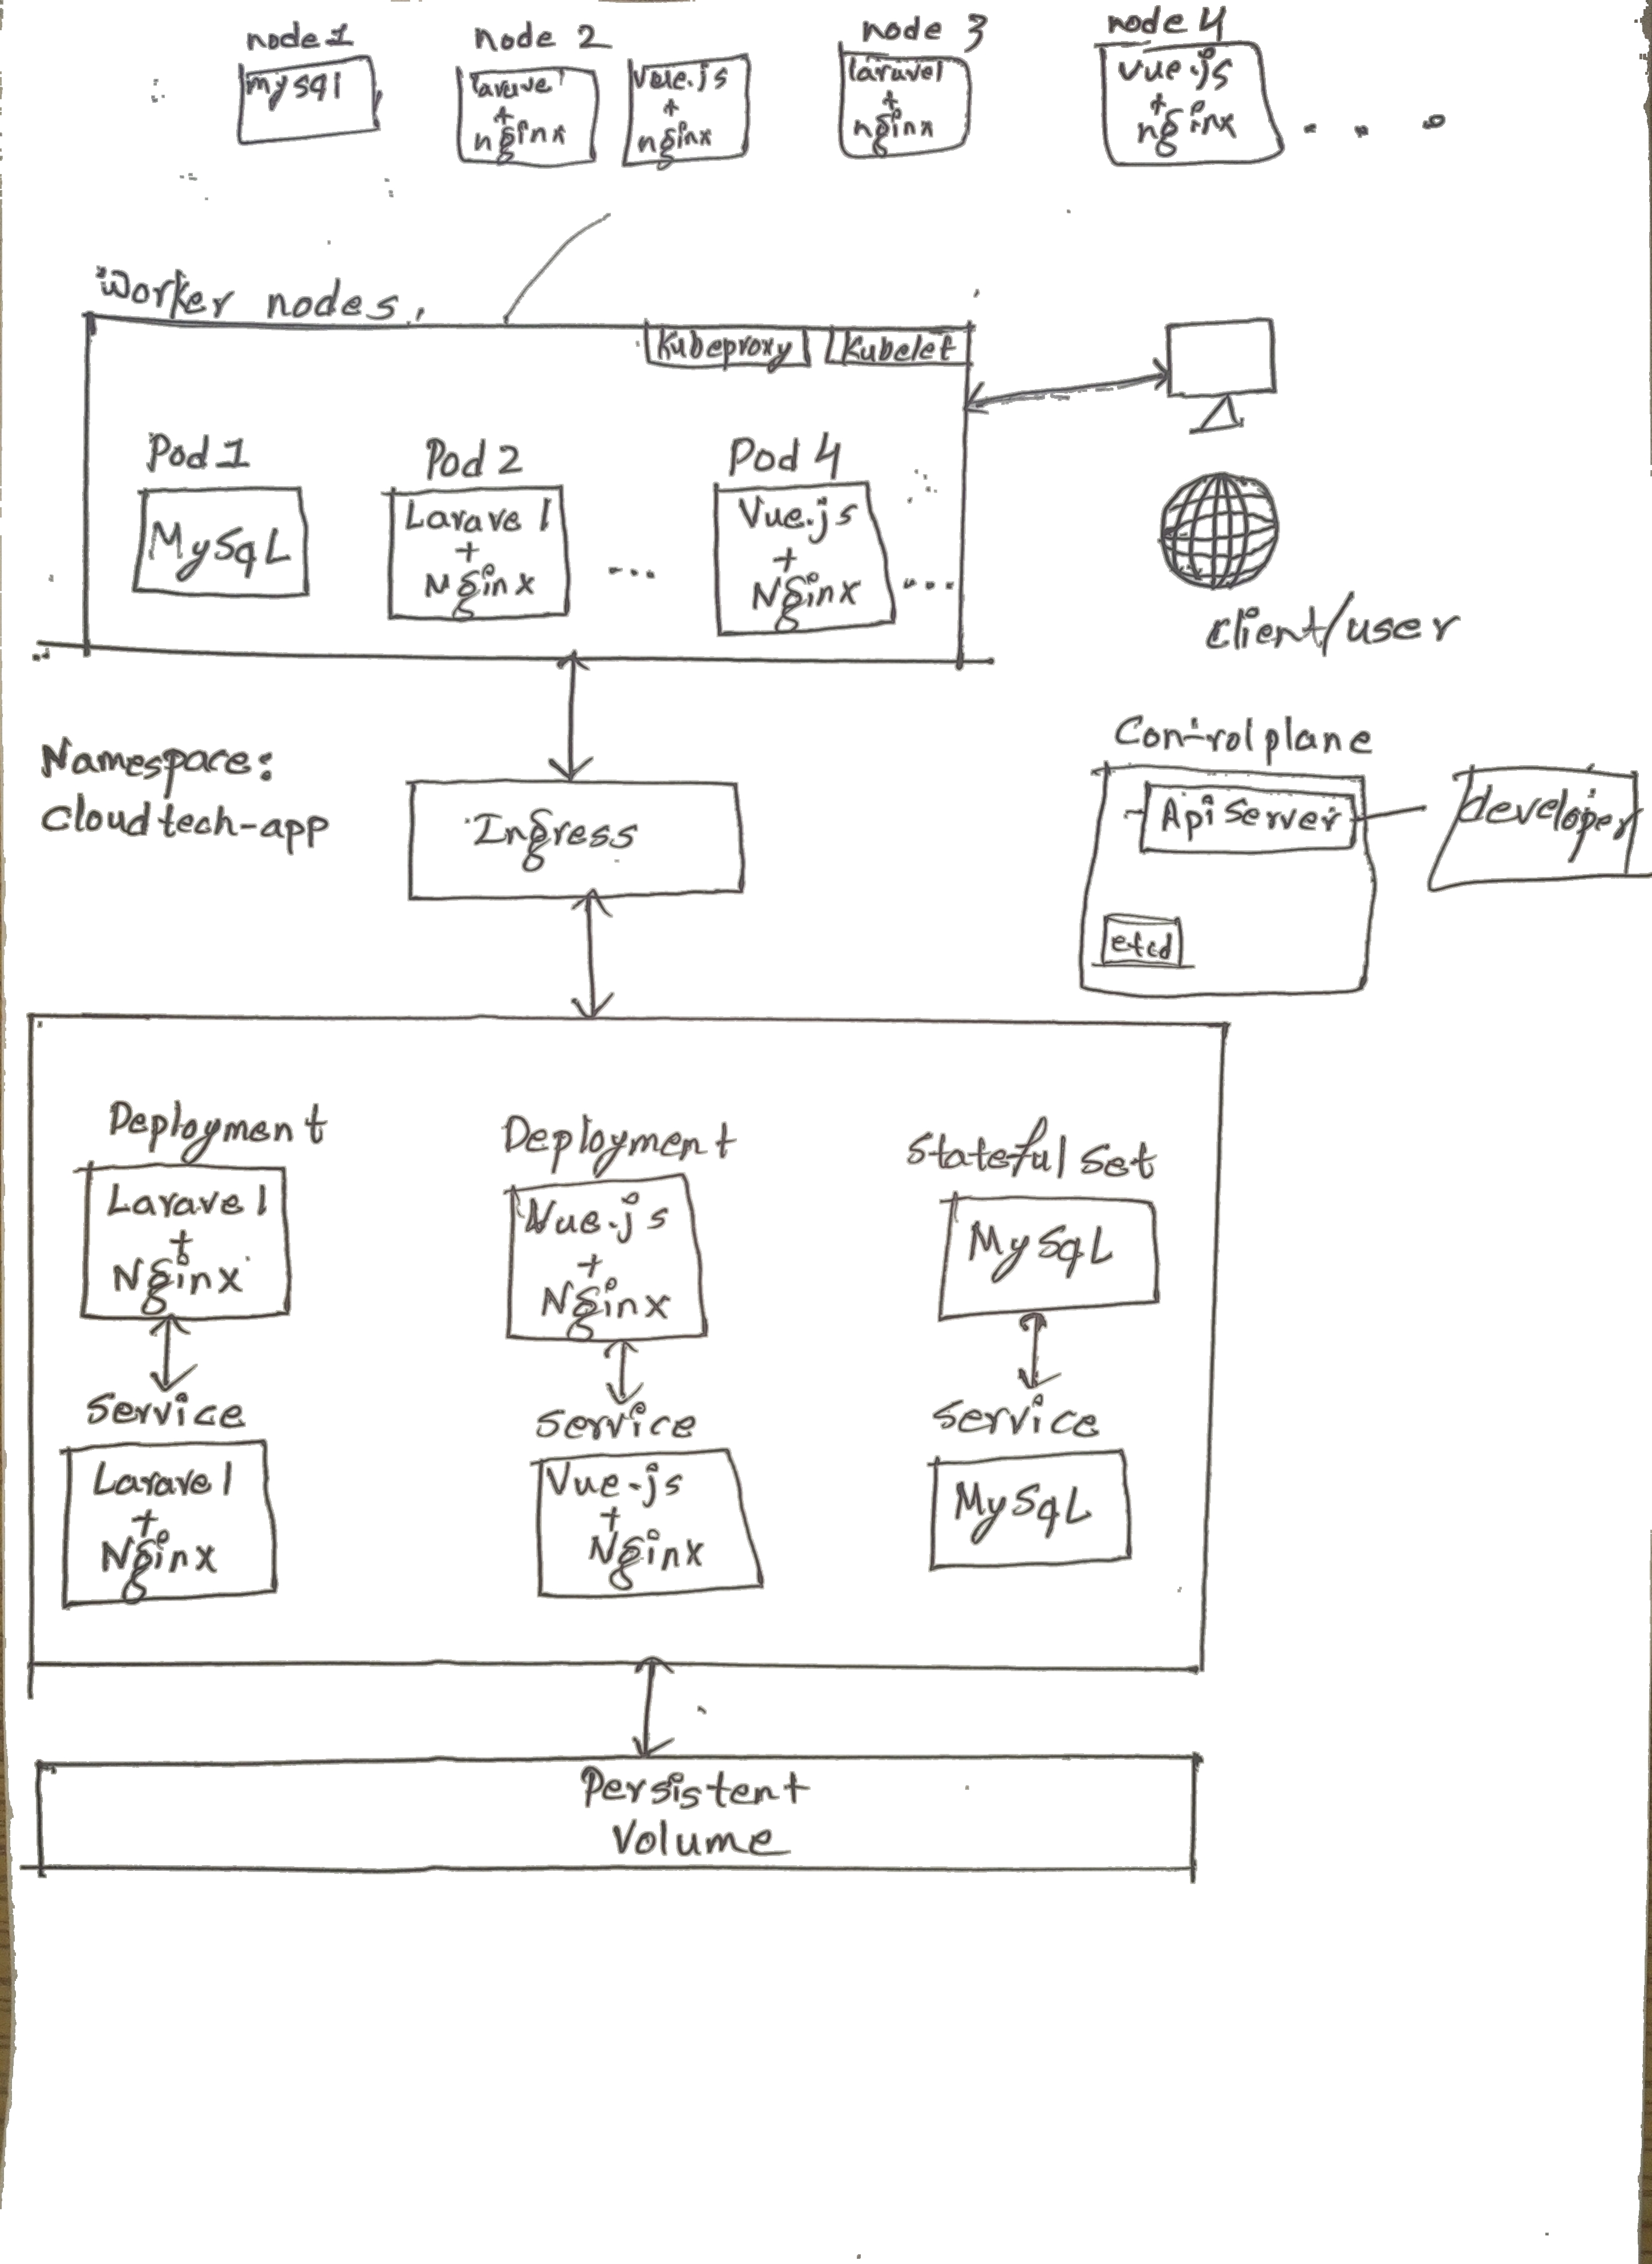 node 1
mysql
node 2
laravel
+
nginx
Vue.js
+
nginx
node 3
laravel
+
nginx
node 4
vue.js
+
nginx
...
Worker nodes.
Kubeproxy
Kubelet
Pod 1
MySqL
Pod 2
Laravel
+
Nginx
...
Pod 4
Vue.js
+
Nginx
...
client/user
Namespace:
Cloudtech-app
Ingress
Control plane
Api Server
developer
etcd
Deployment
Laravel
+
Nginx
Service
Laravel
+
Nginx
Deployment
Vue.js
+
Nginx
Service
Vue.js
+
Nginx
Stateful Set
MySqL
Service
MySqL
Persistent
Volume